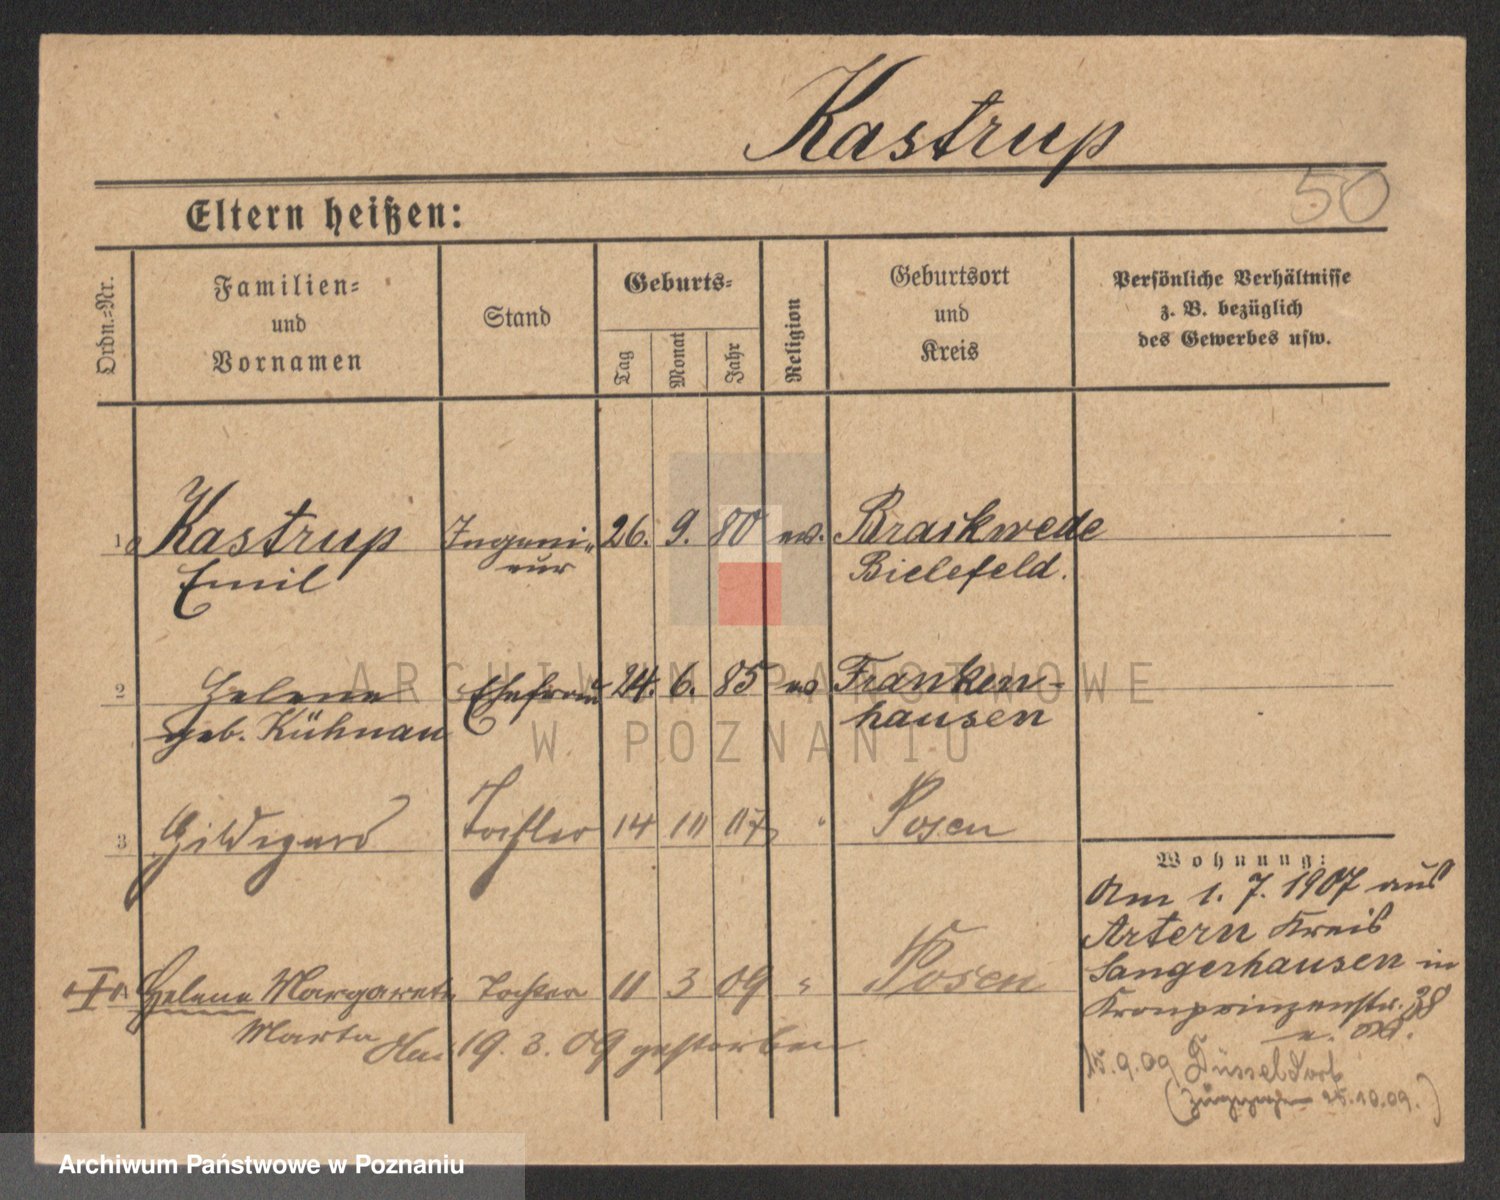 Kastrup
50
Eltern heißen:
Ordn.=Nr.
Familien=
und
Vornamen
Stand
Geburts=
Tag
Monat
Jahr
Religion
Geburtsort
und
Kreis
Persönliche Verhältnisse
z. B. bezüglich
des Gewerbes usw.
1 Kastrup Ingeni- 26. 9. 80 ev. Brackwede
Emil eur Bielefeld.
2 Helene Ehefrau 24. 6. 85 ev Franken-
geb. Kühnau hausen
3 Hildegard Tochter 14 10 07 " Posen
Wohnung:
Am 1. 7. 1907 aus
Artern Kreis
Sangerhausen in
Kronprinzenstr. 38
Helene Margarete Tochter 11 3 09 " Posen
Marta
Am 19. 3. 09 gestorben
15.9.09 Düsseldorf
(25.10.09.)
ARCHIWUM PAŃSTWOWE
W POZNANIU
Archiwum Państwowe w Poznaniu